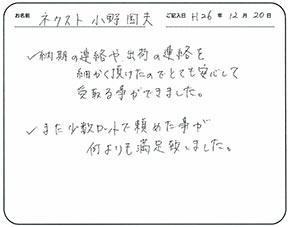 お名前 ネクスト 小野 国夫 ご記入日 H26 年 12 月 20 日
✓納期の連絡や、出荷の連絡を
細かく頂けたのでとても安心して
受取る事ができました。
✓また少数ロットで頼めた事が
何よりも満足致しました。